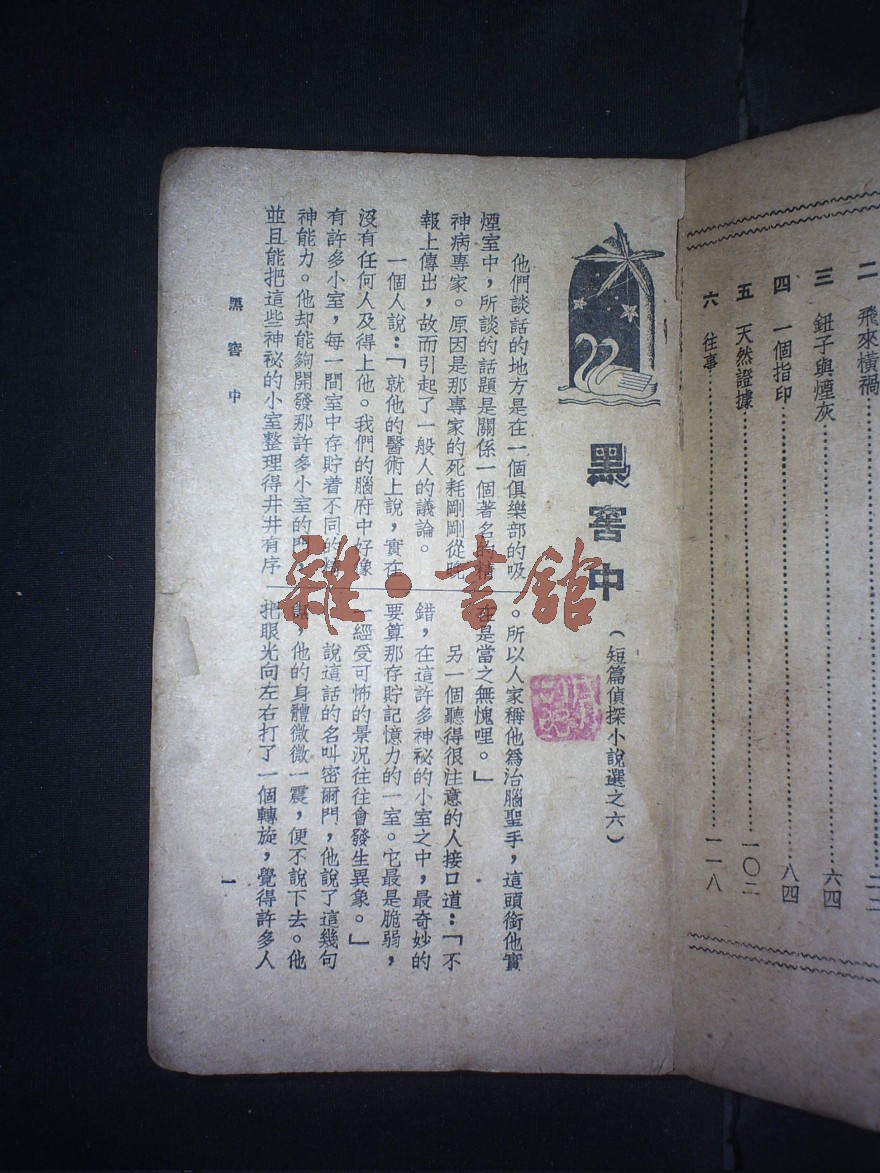 二 飛來橫禍
三 鈕子與煙灰……六四
四 一個指印……八四
五 天然證據……一〇二
六 往事……一一八
黑窖中
（短篇偵探小說選之六）
他們談話的地方是在一個俱樂部的吸
煙室中，所談的話題是關係一個著名的精
神病專家。原因是那專家的死耗剛剛從晚
報上傳出，故而引起了一般人的議論。
一個人說：「就他的醫術上說，實在
沒有任何人及得上他。我們的腦府中好像
有許多小室，每一間室中存貯着不同的
神能力。他却能夠開發那許多小室的門，
並且能把這些神祕的小室整理得井井有序
。所以人家稱他爲治腦聖手，這頭銜他實
在是當之無愧哩。」
另一個聽得很注意的人接口道：「不
錯，在這許多神祕的小室之中，最奇妙的
要算那存貯記憶力的一室。它最是脆弱，
一經受可怖的景況往往會發生異象。」
說這話的名叫密爾門，他說了這幾句
，他的身體微微一震，便不說下去。他
把眼光向左右打了一個轉旋，覺得許多人
黑窖中
一
雜·書館